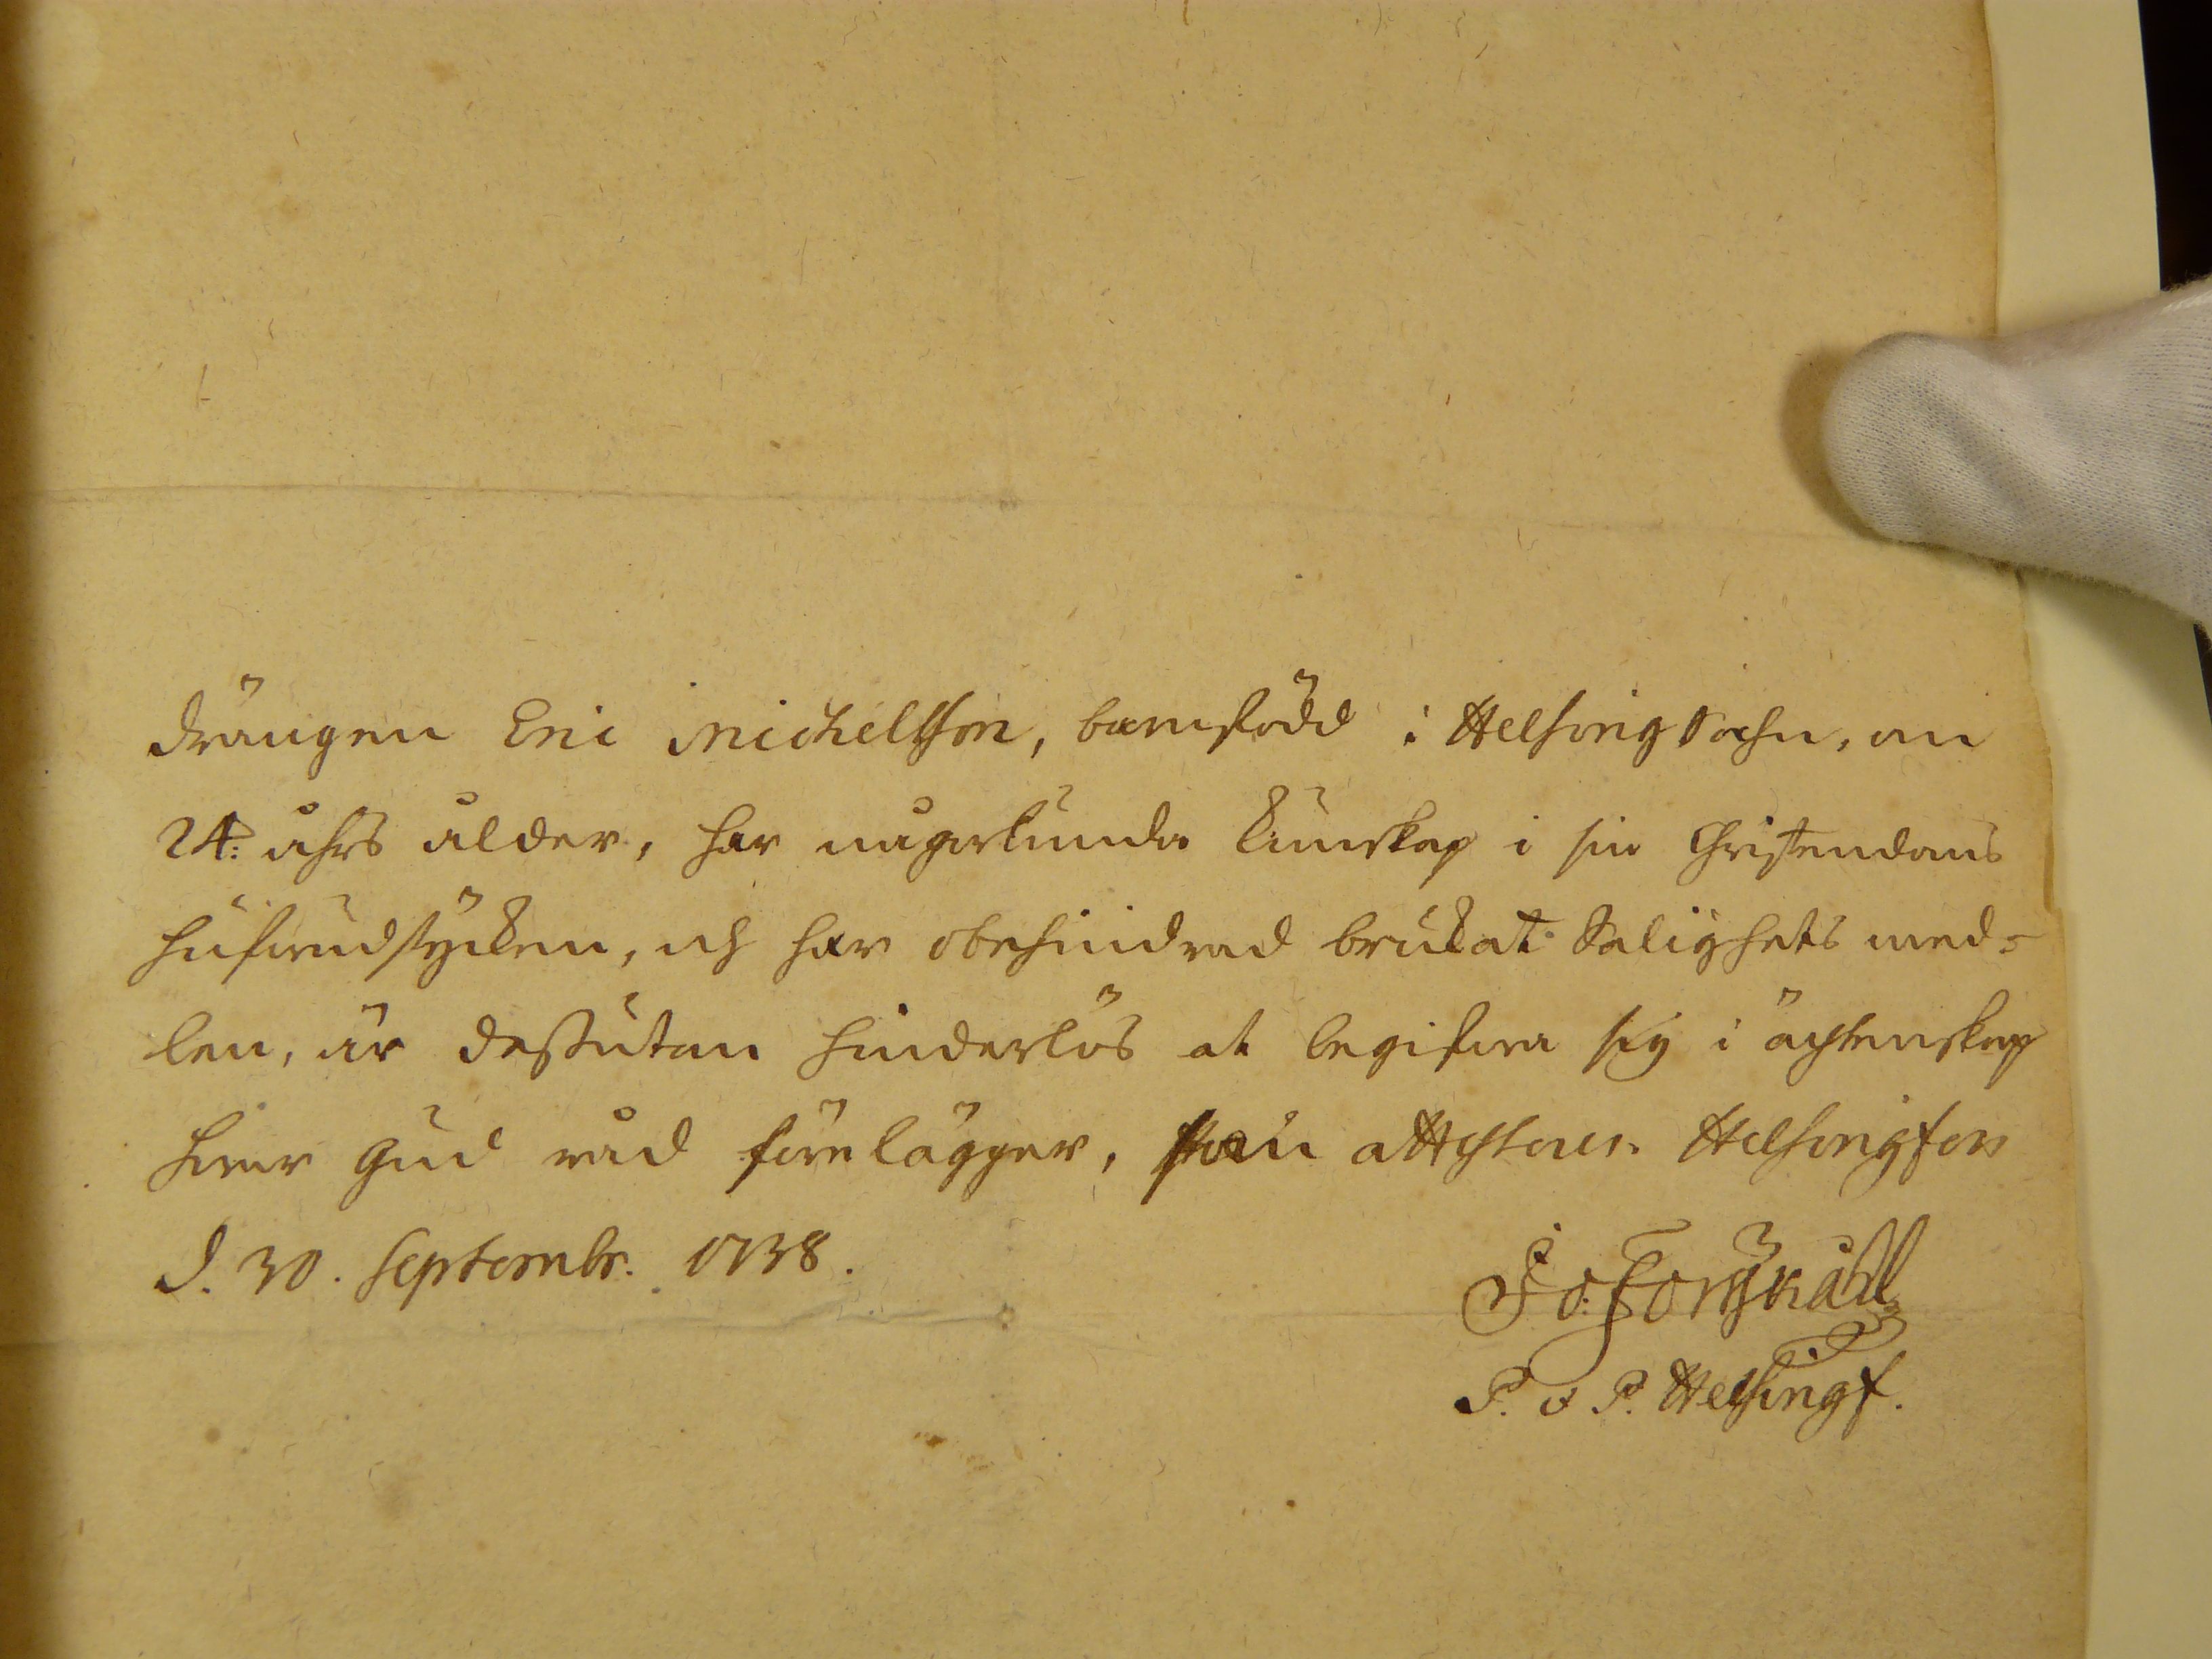 Drängen Eric Michelsson, barnfödd i Helsing Sochn, om
24: åhrs ålder, har någorlunda kunskap i sin Christendoms
hufwudstycken, och har obehindrad brukat Salighets med=
len, är dessutan hinderlös at begifwa sig i ächtenskap
hwar Gud råd förelägger, attesteras. Helsingfors
d. 30. Septembr. 1738.
Jo: Forsskåhl
P. o P. Helsingf.